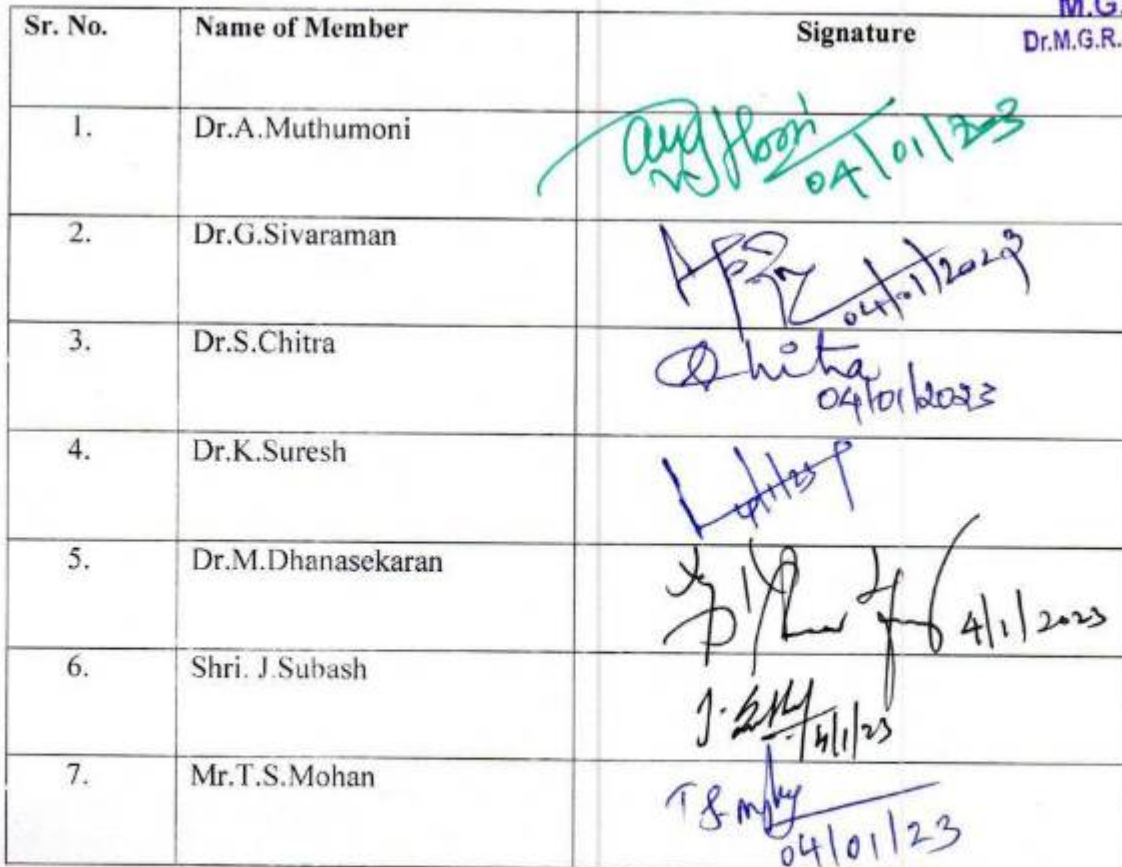 M.G.
Dr.M.G.R.
Sr. No. Name of Member Signature
1. Dr.A.Muthumoni 04/01/23
2. Dr.G.Sivaraman 04/01/2023
3. Dr.S.Chitra Chitra
04/01/2023
4. Dr.K.Suresh 4/1/23
5. Dr.M.Dhanasekaran 4/1/2023
6. Shri. J.Subash J. 4/1/23
7. Mr.T.S.Mohan T S
04/01/23